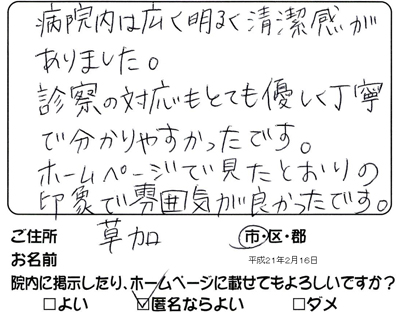 病院内は広く明るく清潔感が
ありました。
診察の対応もとても優しく丁寧
で分かりやすかったです。
ホームページで見たとおりの
印象で雰囲気が良かったです。
ご住所 草加 市・区・郡
お名前 平成21年2月16日
院内に掲示したり、ホームページに載せてもよろしいですか?
□よい ☑匿名ならよい □ダメ